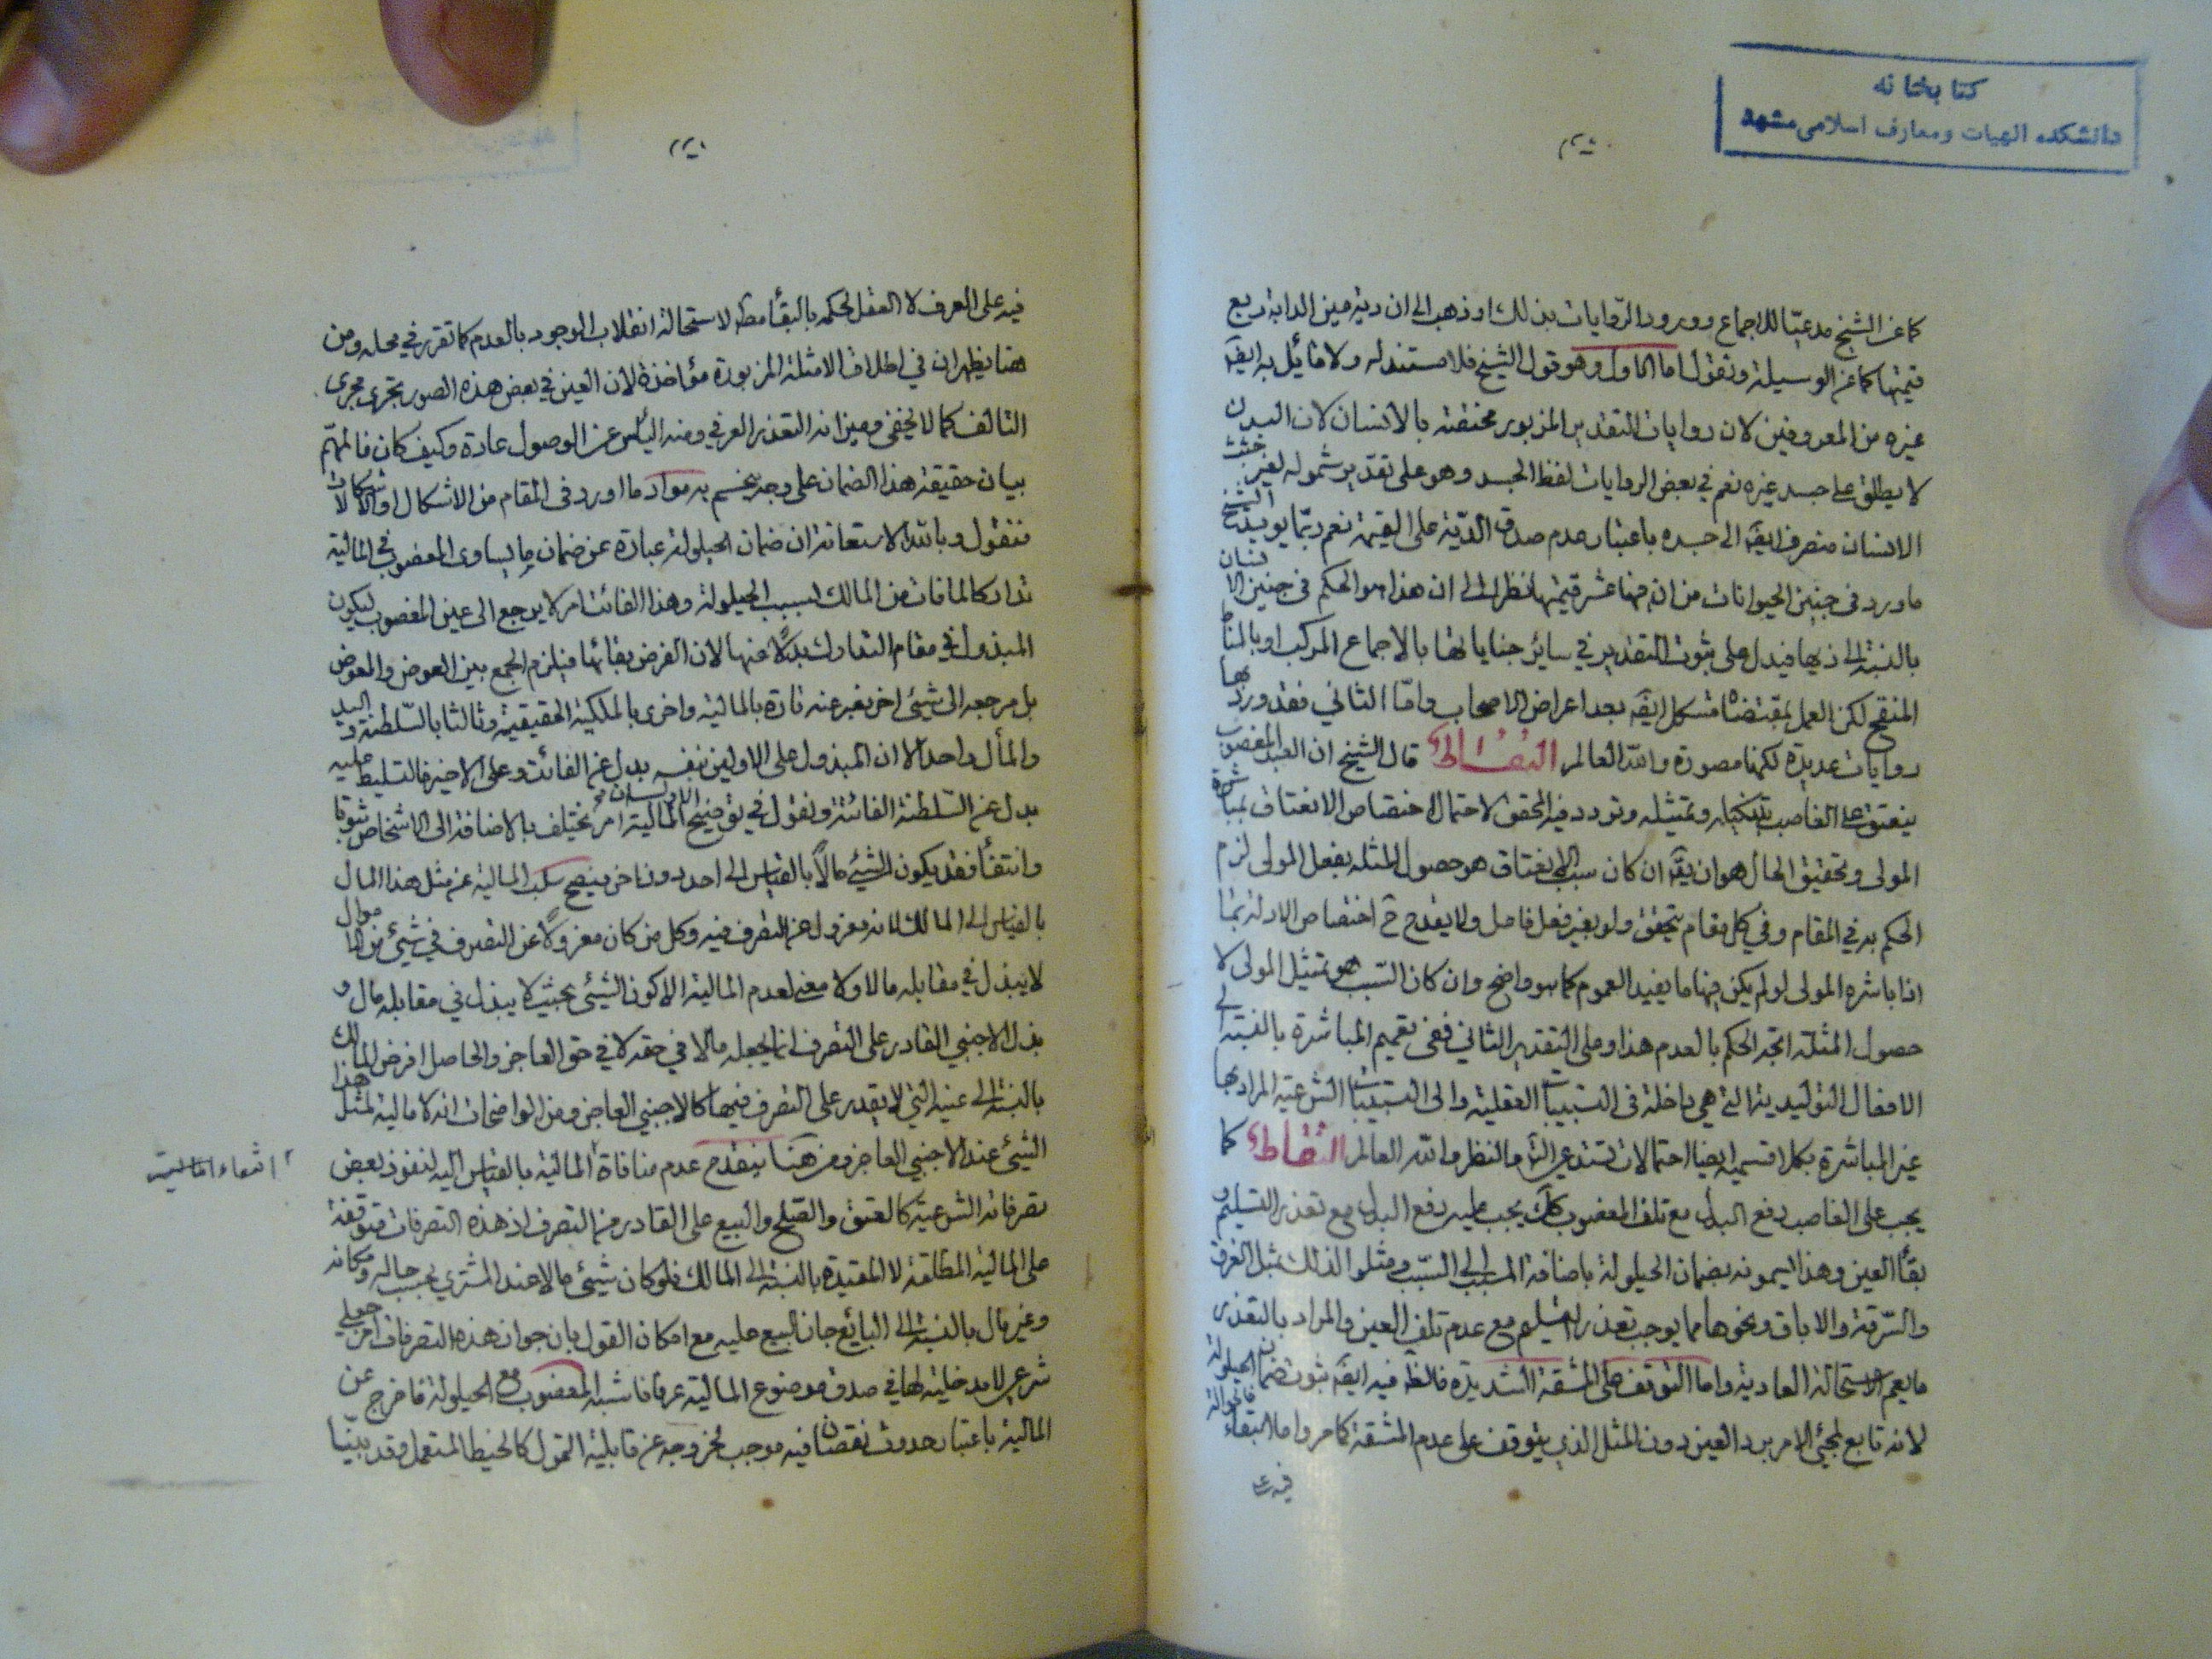 كتابخانه
دانشكده الهيات ومعارف اسلامى مشهد
كما عن الشيخ مدعيا للاجماع وورود الروايات بذلك او ذهب الى ان دية عين الدابة ربع
قيمتها كما عن الوسيلة ونقول اما الاول وهو قول الشيخ فلا مستند له ولا قائل به ايضَ
غيره من المعروفين لان روايات التقدير المزبور مختصة بالانسان لان البدن
لا يطلق على جسد غيره نعم في بعض الروايات لفظ الجسد وهو على تقدير شموله لغير
الانسان منصرف ايضَ الى جسده باعتبار عدم صدق الدية على القيمة نعم ربما يويد الشيخ
ما ورد في جنين الحيوانات من ان فيها عشر قيمتها نظرا الى ان هذا هو الحكم في جنين الانسان
بالنسبة الى ديها فيدل على ثبوت التقدير في ساير جناياتها بالاجماع المركب او بالمناط
المنقح لكن العمل بمقتضاه مشكل ايضَ بعد اعراض الاصحاب واما الثاني فقد ورد بها
روايات عديدة لكنها مصورة والله العالم التقاط قال الشيخ ان العبد المغصوب
ينعتق على الغاصب بتنكيله وتمثيله وتردد فيه المحقق لاحتمال اختصاص الانعتاق بمباشرة
المولى وتحقيق الحال هو ان يقَ ان كان سبب الانعتاق هو حصول المثلة بفعل المولى لزم
الحكم به في المقام وفي كل مقام يتحقق ولو بغير فعل فاصل ولا يقدح ح اختصاص الادلة بما
اذا باشره المولى لو لم يكن فيها ما يفيد العموم كما هو واضح وان كان السبب هو تمثيل المولى لا
حصول المثلة اتجه الحكم بالعدم هذا وعلى التقدير الثاني ففي تعميم المباشرة بالنسبة الى
الافعال التوليدية التي هي داخلة في التسبيبات العقلية والى التسبيبات الشرعية المراد بها
غير المباشرة بكلا قسميه ايضا احتمالات تستدعي التامل والنظر والله العالم التقاط كما
يجب على الغاصب دفع البدل مع تلف المغصوب كك يجب عليه دفع البدل مع تعذر التسليم و
بقأ العين وهذا يسمونه بضمان الحيلولة باضافة المسبب الى السبب ومثلوا لذلك بمثل الغرق
والسرقة والاباق ونحوها مما يوجب تعذر التسليم مع عدم تلف العين والمراد بالتعذر
ما يعم الاستحالة العادية واما التوقف على المشقة الشديدة فالظ فيه ايضَ ثبوت ضمان الحيلولة
لانه تابع لمجئ الامر برد العين دون المثل الذي يتوقف على عدم المشقة كما مر واما البقاء فالحوالة
فيه على
فيه على العرف لا العقل لحكمه بالبقأ مطَ لاستحالة انقلاب الوجود بالعدم كما تقرر في محله ومن
هنا يظهر ان في اطلاق الامثلة المزبورة مؤاخذة لان العين في بعض هذه الصور تجرى مجرى
التالف كما لا يخفى وميزانه التعذر العرفي ومنه الياس عن الوصول عادة وكيف كان فالمهم
بيان حقيقة هذا الضمان على وجه ينحسم به مواد ما اورد في المقام من الاشكال او الاشكالات
فنقول وبالله الاستعانة ان ضمان الحيلولة عبارة عن ضمان ما يساوى المغصوب في المالية
تداركا لما فات من المالك بسبب الحيلولة وهذا الفائت امر لا يرجع الى عين المغصوب ليكون
المبذول في مقام التدارك بدلا عنها لان الفرض بقائها فيلزم الجمع بين العوض والمعوض
بل مرجعه الى شيئ اخر يعبر عنه تارة بالمالية واخرى بالملكية الحقيقية وثالثا بالسلطنة واليد
والمأل واحد الا ان المبذول على الاولين نفسه بدل عن الفائت وعلى الاخير فالتسليط عليه
بدل عن السلطنة الفائتة ونقول في توضيح المالية امر يختلف بالاضافة الى الاشخاص ثبوتا
وانتفأ فقد يكون الشيئ مالا بالقياس الى احد دون اخر فيصح سلب المالية عن مثل هذا المال
بالقياس الى المالك لانه معزول عن التصرف فيه وكل من كان معزولا عن التصرف في شيئ من الاموال
لا يبذل في مقابله مالا ولا معنى لعدم المالية الا كون الشيئ بحيث لا يبذل في مقابله مال و
بذل الاجنبي القادر على التصرف انما يجعله مالا في حقه لا في حق العاجز والحاصل افرض المالك
بالنسبة الى عينه التي لا يقدر على التصرف فيها كالاجنبي العاجز ومن الواضحات انه لا مالية لمثل هذا
الشيئ عند الاجنبي العاجز ومن هنا ينقدح عدم منافاة المالية بالقياس اليه لنفوذ بعض
انتفاء المالية
تصرفاته الشرعية كالعتق والصلح والبيع على القادر من التصرف اذ هذه التصرفات متوقفة
على المالية المطلقة لا المقيدة بالنسبة الى المالك فلو كان شيئ مالا عند المشتري بحسب حاله ومكانه
وغير مال بالنسبة الى البائع جاز البيع عليه مع امكان القول بان جواز هذه التصرفات امر جعلي
شرعي لا مدخلية لها في صدق موضوع المالية عرفا فاشبه المغصوب مع الحيلولة ما خرج عن
المالية باعتبار حدوث نقصان فيه موجب لخروجه عن قابلية التمول كالخيط المتعمل وقد بينا